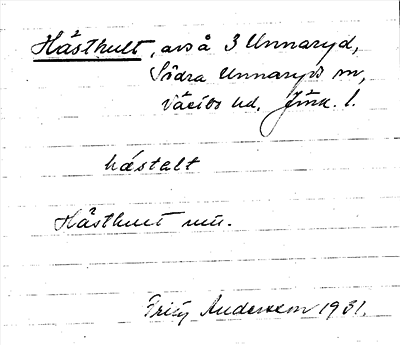 Håsthult, avs å 3 Unnaryd,
Södra Unnaryds sn,
Västbo hd, Jönk. l.
håstalt
Håsthult mu.
Fritz Andersson 1931.